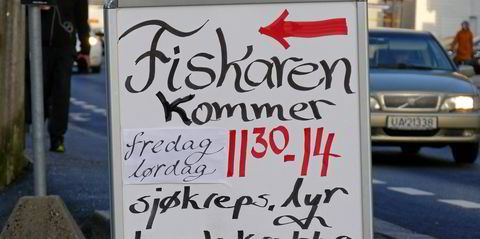 Fiskaren
kommer
fredag
lørdag
11 30 - 14
sjøkreps, lyr
UA 21338